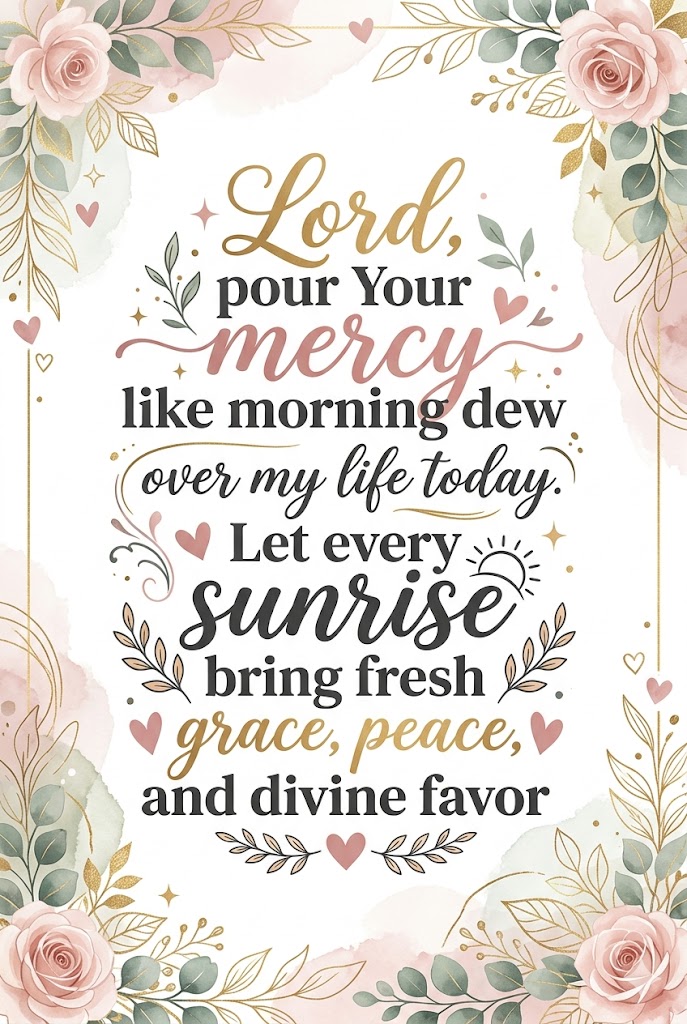 Lord,
pour Your
mercy
like morning dew
over my life today.
Let every
sunrise
bring fresh
grace, peace,
and divine favor